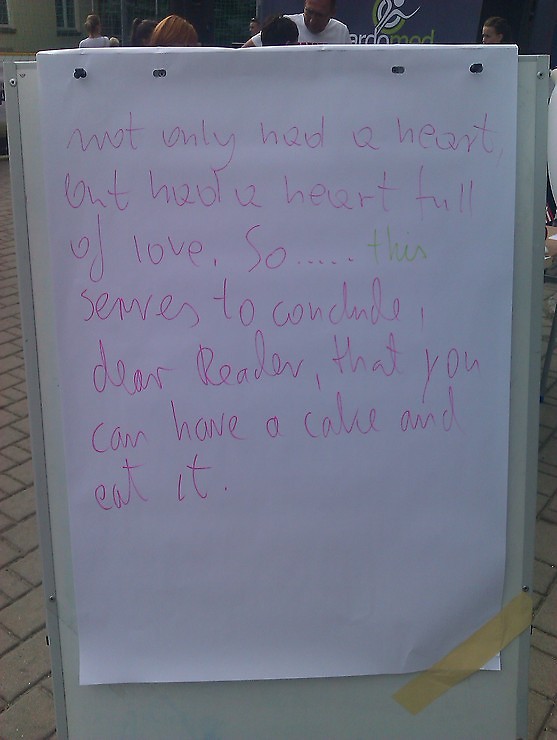 ardomed
not only had a heart,
but had a heart full
of love. So..... this
serves to conclude,
dear Reader, that you
can have a cake and
eat it.